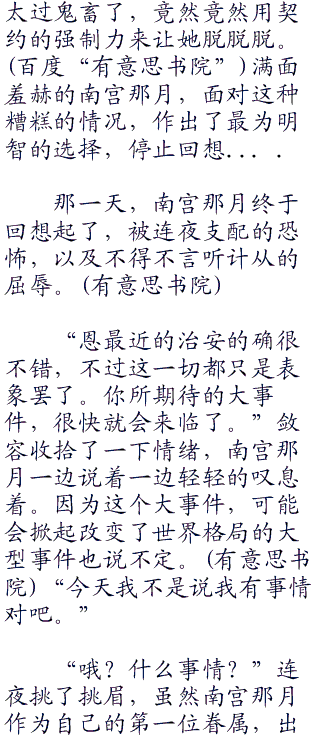 太过鬼畜了，竟然竟然用契
约的强制力来让她脱脱脱。
(百度“有意思书院”)满面
羞赫的南宫那月，面对这种
糟糕的情况，作出了最为明
智的选择，停止回想．．．．
那一天，南宫那月终于
回想起了，被连夜支配的恐
怖，以及不得不言听计从的
屈辱。(有意思书院)
“恩最近的治安的确很
不错，不过这一切都只是表
象罢了。你所期待的大事
件，很快就会来临了。”敛
容收拾了一下情绪，南宫那
月一边说着一边轻轻的叹息
着。因为这个大事件，可能
会掀起改变了世界格局的大
型事件也说不定。(有意思书
院)“今天我不是说我有事情
对吧。”
“哦？什么事情？”连
夜挑了挑眉，虽然南宫那月
作为自己的第一位眷属，出